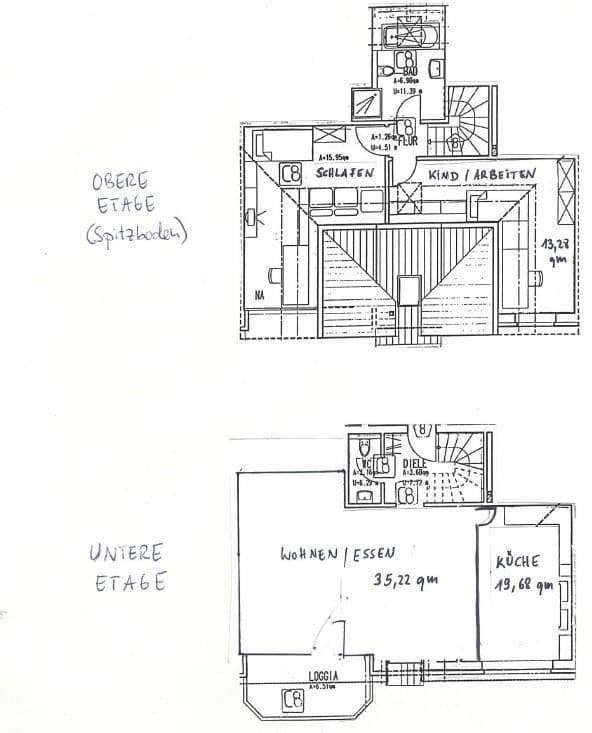 BAD
A=6.90qm
U=11.39 m
A=1.26qm
FLUR
U=4.51 m
A=15.95qm
SCHLAFEN
KIND / ARBEITEN
OBERE
ETAGE
(Spitzboden)
13,28
qm
NA
WC
DIELE
A=3.60qm
U=7.72 m
WOHNEN / ESSEN
35,22 qm
KÜCHE
19,68 qm
UNTERE
ETAGE
LOGGIA
A=6.51qm